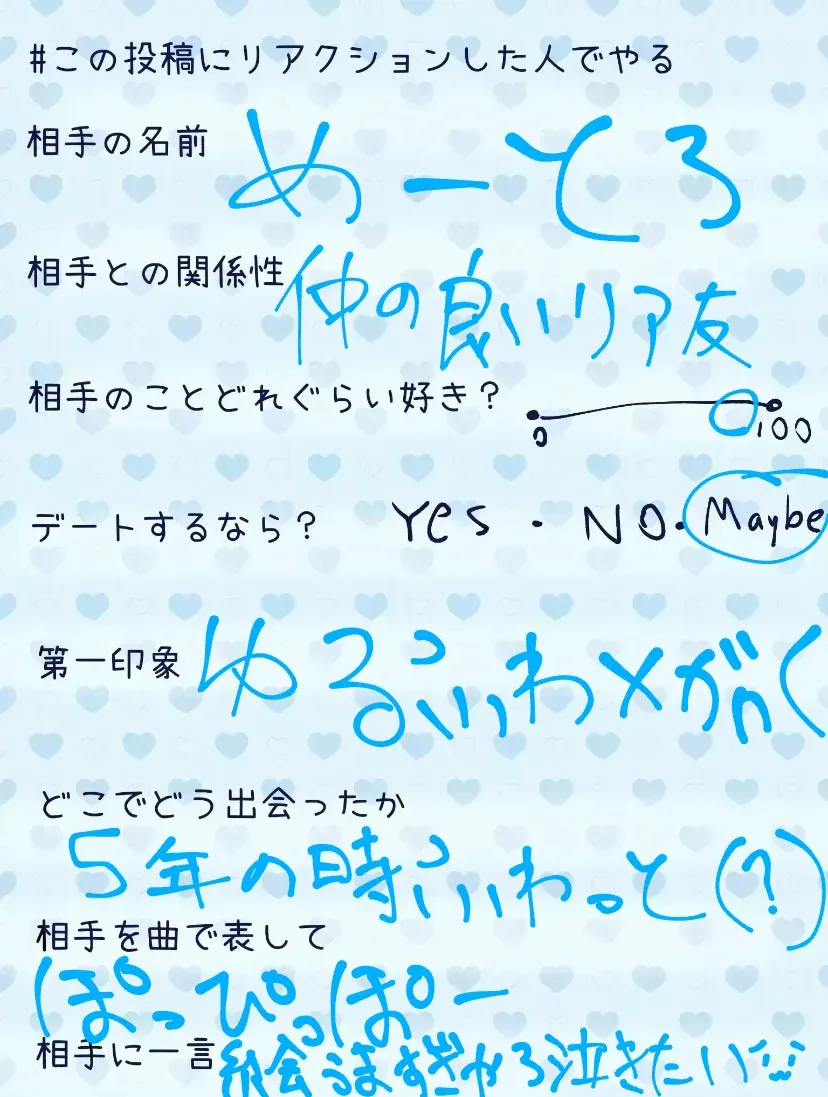 #この投稿にリアクションした人でやる
相手の名前 めーとろ
相手との関係性 仲の良いリア友
相手のことどれぐらい好き？
0 100
デートするなら？ Yes・NO・Maybe
第一印象 ゆるふわメガnく
どこでどう出会ったか
5年の時ふわっと(?)
相手を曲で表して
ぽっぴっぽー
相手に一言 絵うますぎやろ泣きたい